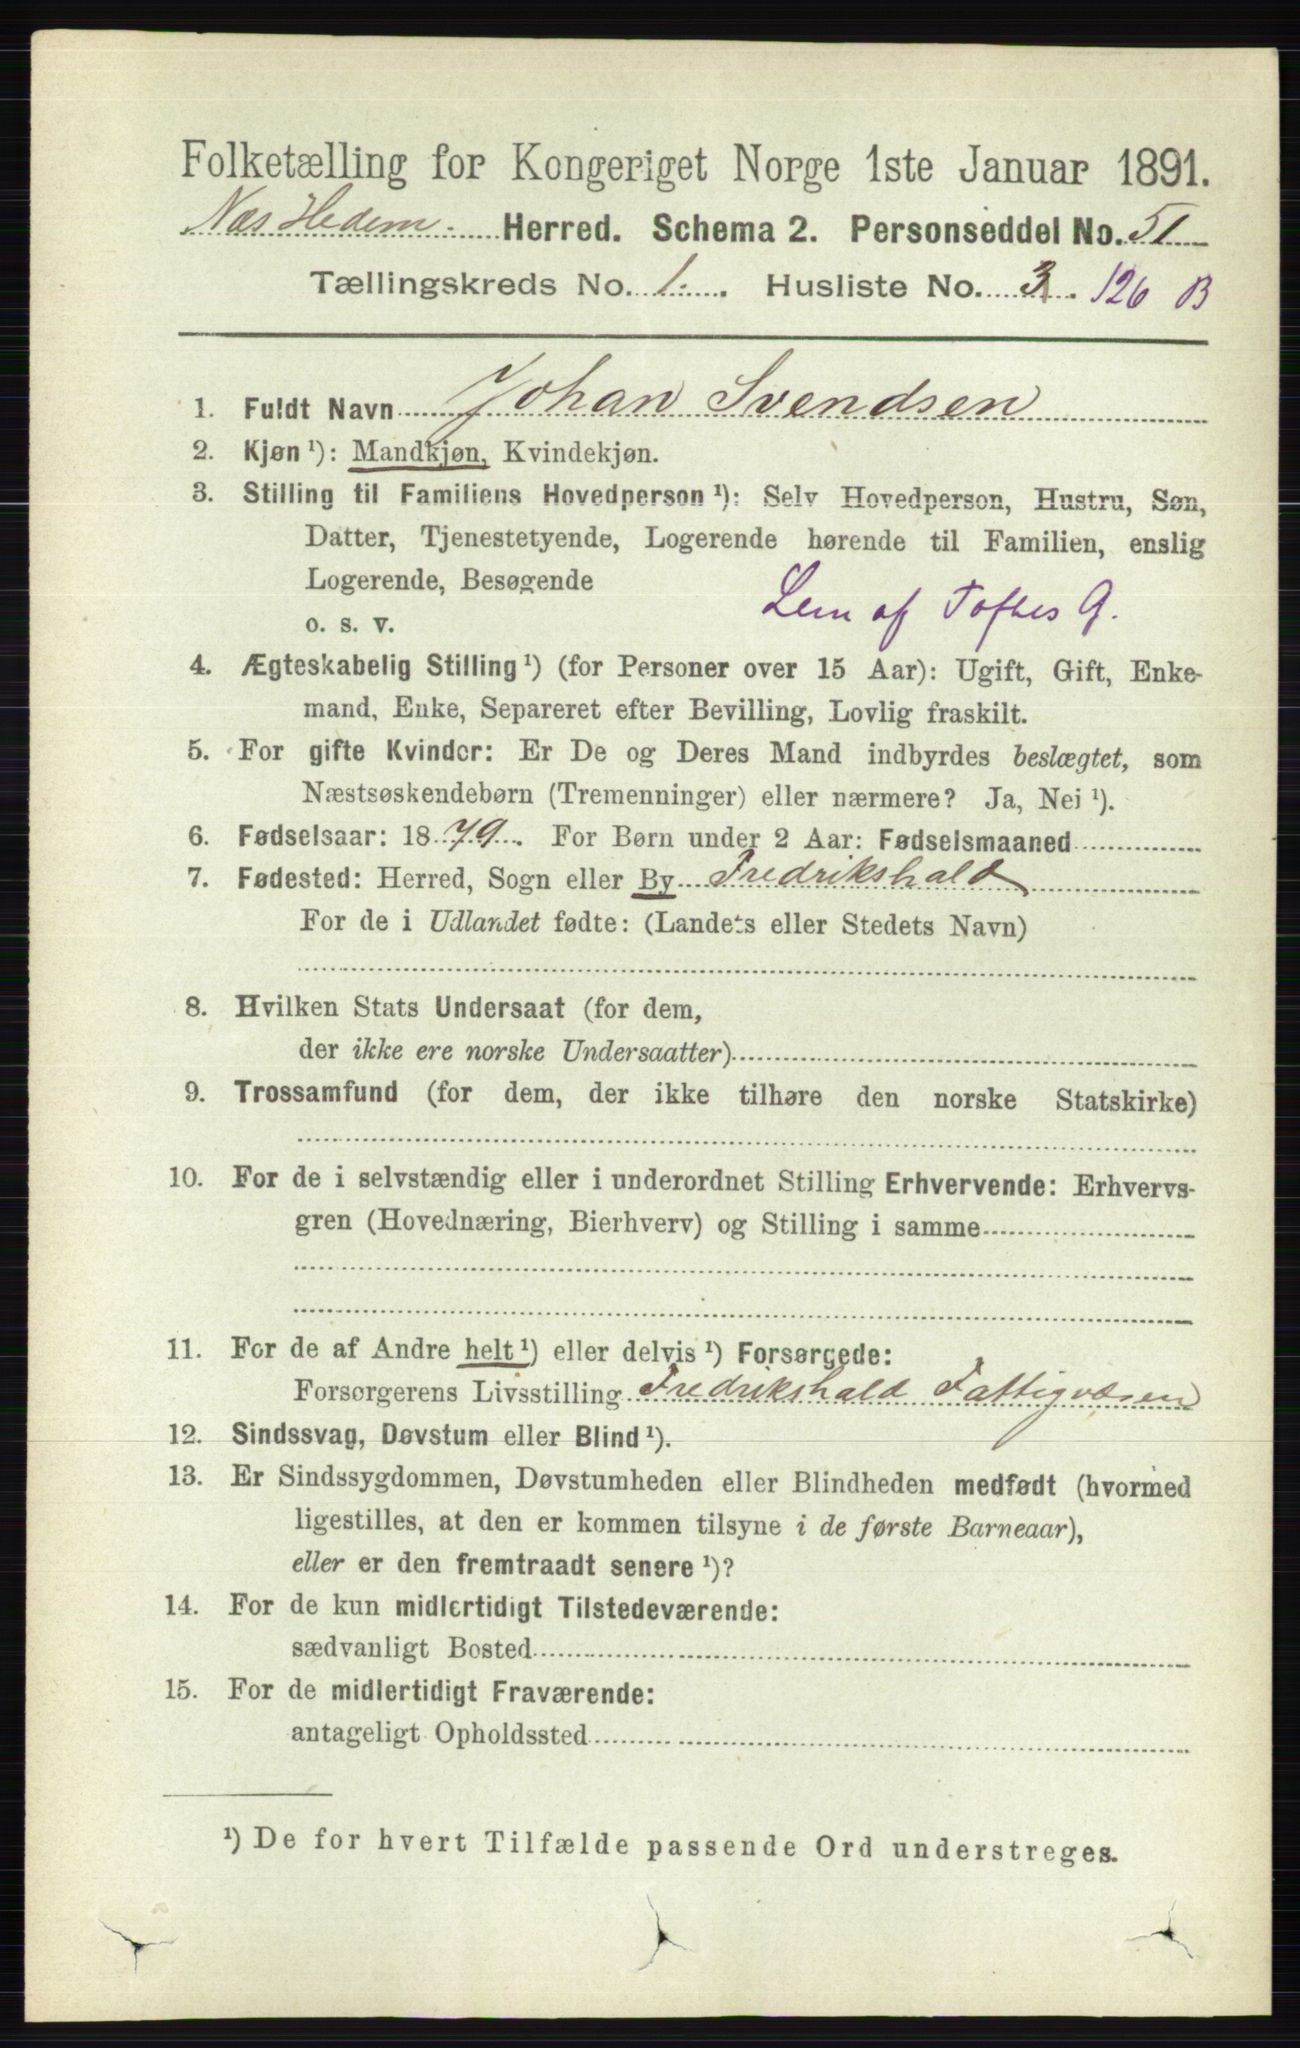 Folketælling for Kongeriget Norge 1ste Januar 1891.
Næs Hedem. Herred. Schema 2. Personseddel No. 51
Tællingskreds No. 1. Husliste No. 3. 126 B
1. Fuldt Navn Johan Svendsen
2. Kjøn ¹): Mandkjøn, Kvindekjøn.
3. Stilling til Familiens Hovedperson ¹): Selv Hovedperson, Hustru, Søn,
Datter, Tjenestetyende, Logerende hørende til Familien, enslig
Logerende, Besøgende
o. s. v. Lem af Toftes G.
4. Ægteskabelig Stilling ¹) (for Personer over 15 Aar): Ugift, Gift, Enke-
mand, Enke, Separeret efter Bevilling, Lovlig fraskilt.
5. For gifte Kvinder: Er De og Deres Mand indbyrdes beslægtet, som
Næstsøskendebørn (Tremenninger) eller nærmere? Ja, Nei ¹).
6. Fødselsaar: 1879. For Børn under 2 Aar: Fødselsmaaned
7. Fødested: Herred, Sogn eller By Fredrikshald
For de i Udlandet fødte: (Landets eller Stedets Navn)
8. Hvilken Stats Undersaat (for dem,
der ikke ere norske Undersaatter)
9. Trossamfund (for dem, der ikke tilhøre den norske Statskirke)
10. For de i selvstændig eller i underordnet Stilling Erhvervende: Erhvervs-
gren (Hovednæring, Bierhverv) og Stilling i samme
11. For de af Andre helt ¹) eller delvis ¹) Forsørgede:
Forsørgerens Livsstilling Fredrikshald Fattigvæsen
12. Sindssvag, Døvstum eller Blind ¹).
13. Er Sindssygdommen, Døvstumheden eller Blindheden medfødt (hvormed
ligestilles, at den er kommen tilsyne i de første Barneaar),
eller er den fremtraadt senere ¹)?
14. For de kun midlertidigt Tilstedeværende:
sædvanligt Bosted
15. For de midlertidigt Fraværende:
antageligt Opholdssted
¹) De for hvert Tilfælde passende Ord understreges.